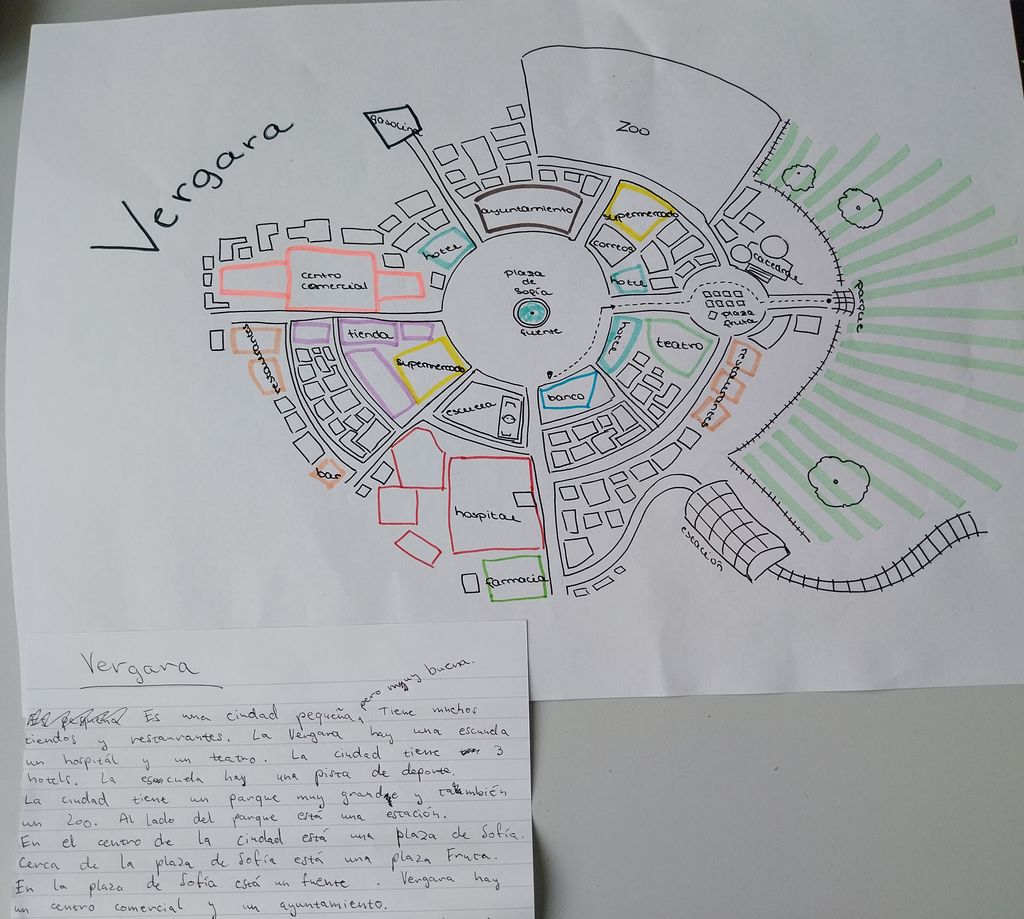 Vergara
gasolina
Zoo
ayuntamiento
supermercado
correos
hotel
centro
comercial
plaza
de
sofía
fuente
hotel
catedral
plaza
fruta
parque
restaurantes
tienda
supermercado
hotel
teatro
restaurantes
escuela
banco
bar
hospital
estación
farmacia
Vergara
Es una ciudad pequeña, pero muy buena. Tiene muchos
tiendos y restaurantes. La Vergara hay una escuela
un hospitál y un teatro. La ciudad tiene 3
hotels. La escuela hay una pista de deporte.
La ciudad tiene un parque muy grande y también
un zoo. Al lado del parque está una estación.
En el centro de la ciudad está una plaza de Sofía.
Cerca de la plaza de Sofía está una plaza Fruta.
En la plaza de Sofía está un fuente. Vergara hay
un centro comercial y un ayuntamiento.